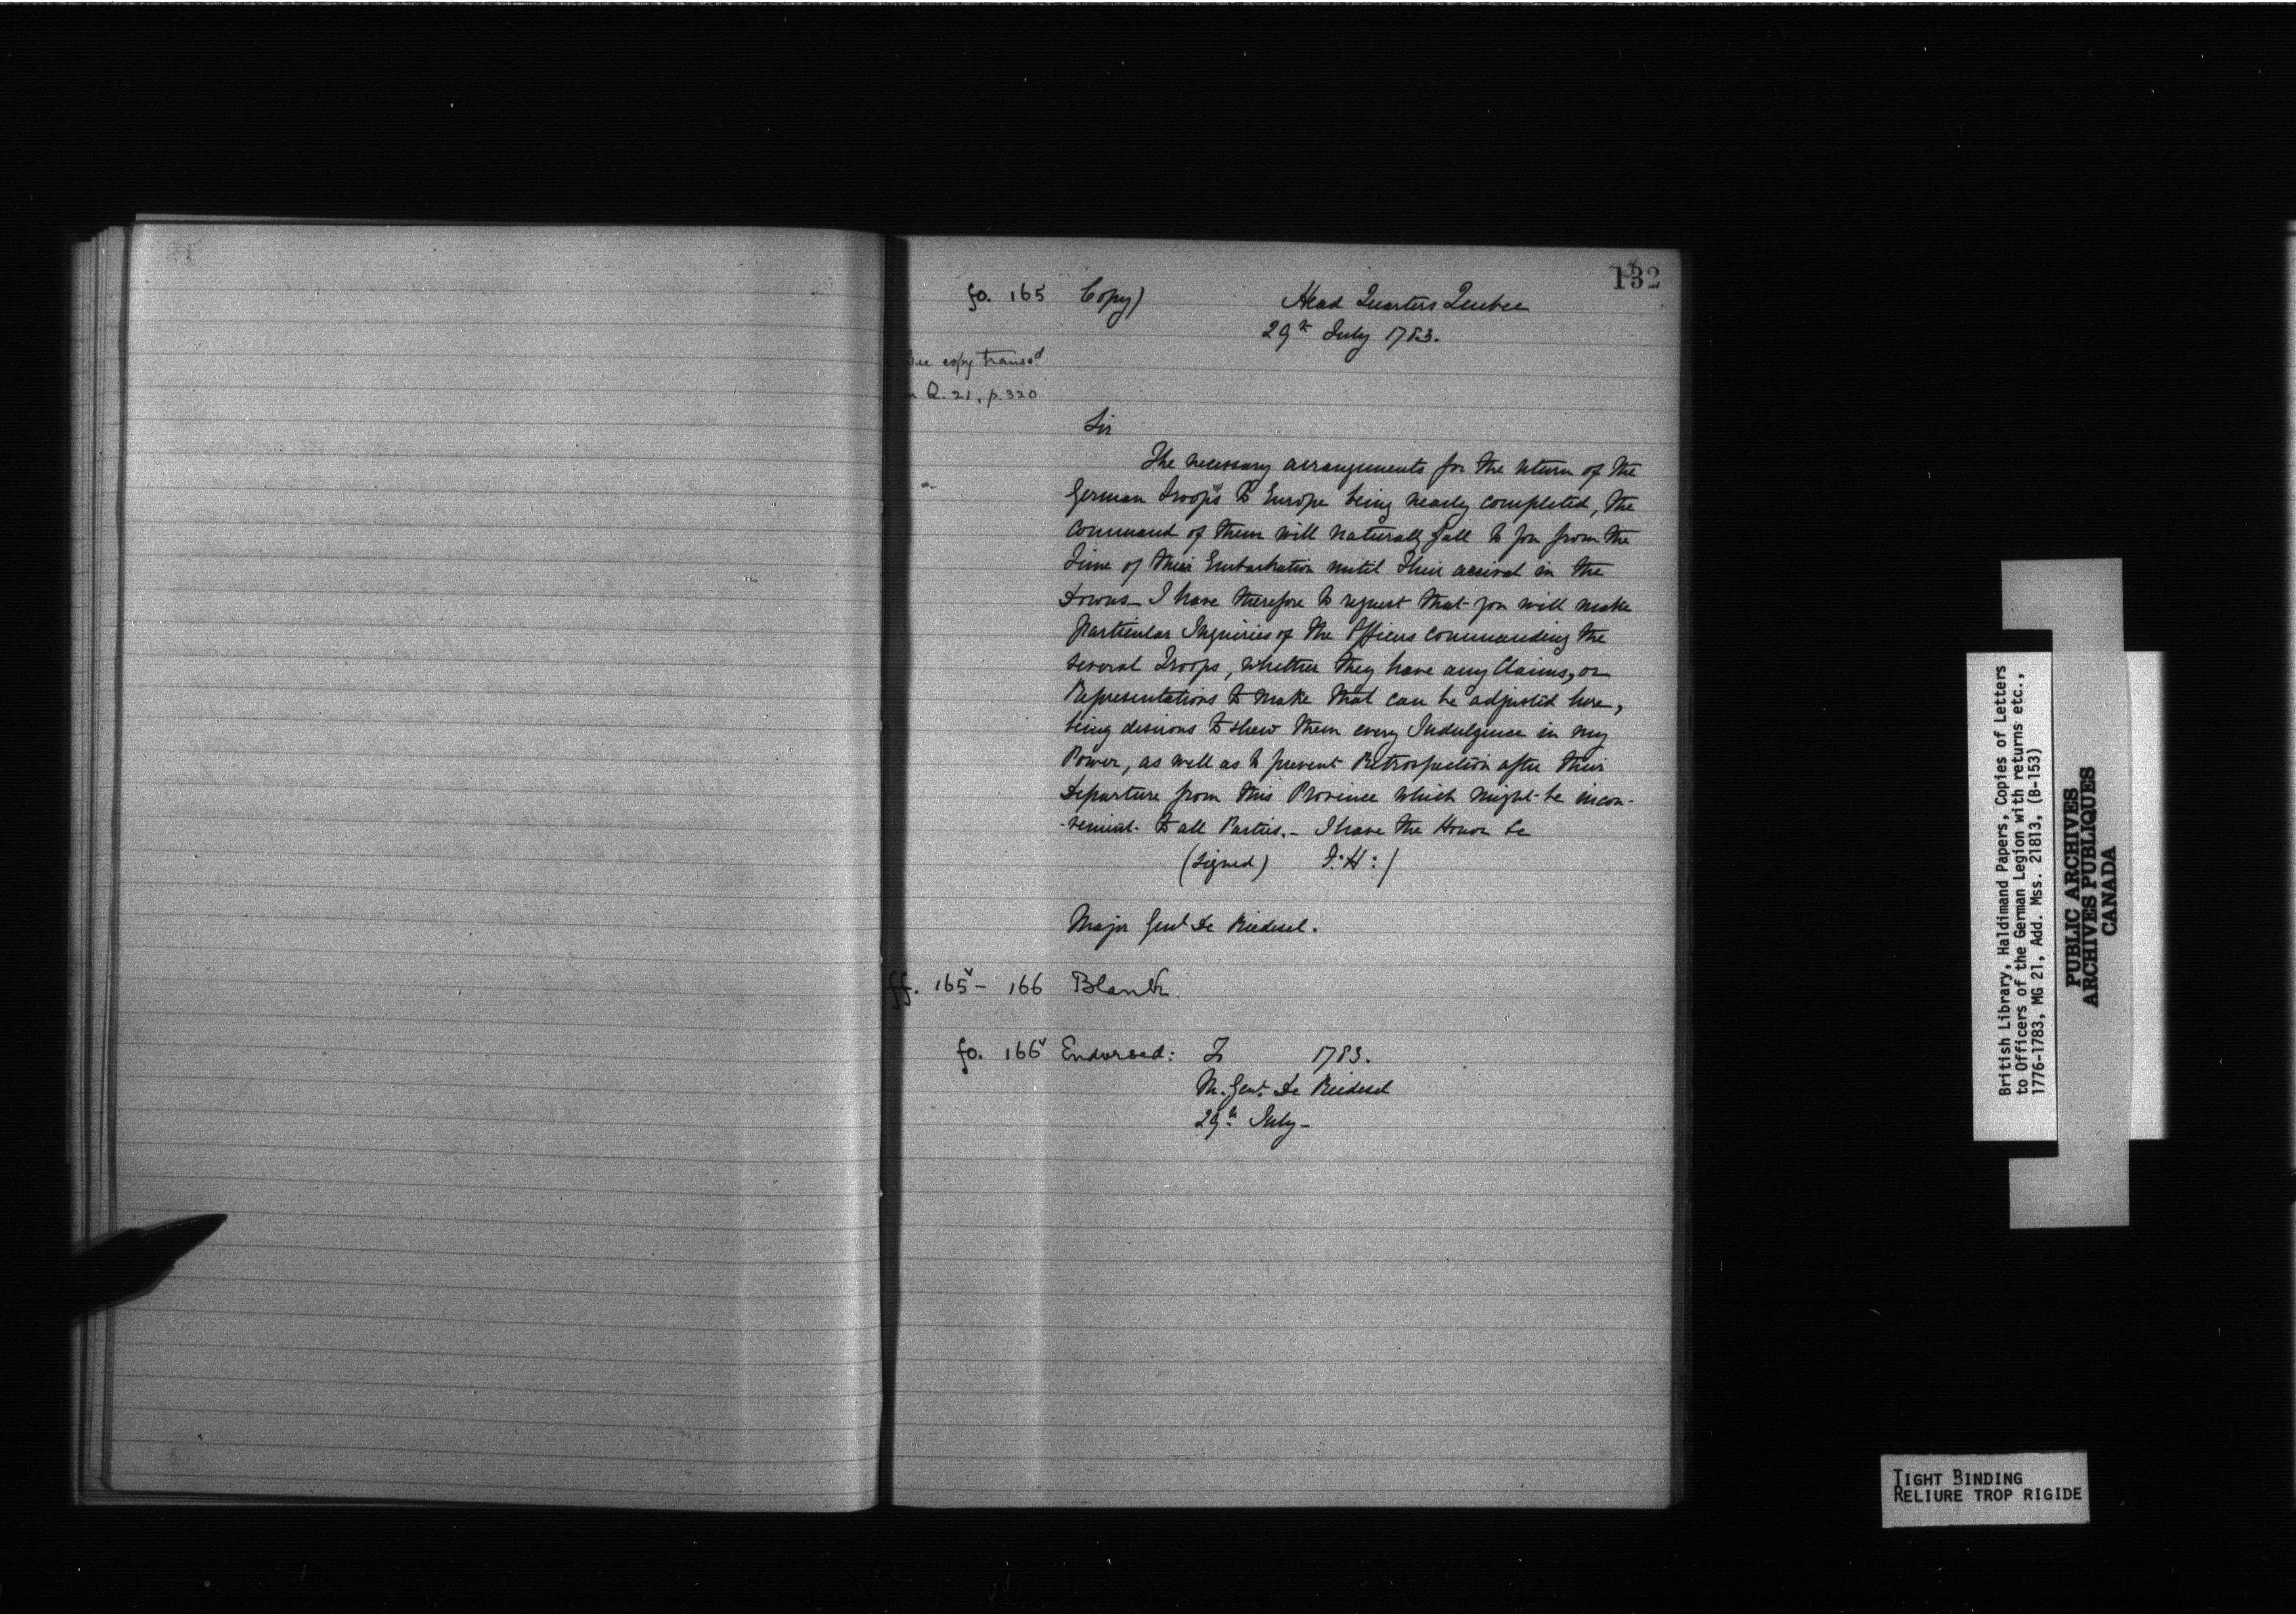 132
fo. 165 Copy) Head Quarters Quebec
29th July 1783.
See copy transcd
in Q. 21, p. 320
Sir
The necessary arrangements for the return of the
German Troops to Europe being nearly completed, the
command of them will naturally fall to you from the
Time of their Embarkation until their arrival in the
Downs_ I have therefore to request that you will make
particular Inquiries of the Officers commanding the
several Troops, whether they have any Claims, or
Representations to make that can be adjusted here,
being desirous to shew them every Indulgence in my
Power, as well as to prevent Retrospection after their
Departure from this Province which might be incon-
-venient to all Parties._ I have the Honor &c
(Signed) F: H: /
Major Genl De Riedesel.
ff. 165v - 166 Blank.
fo. 166v Endorsed: To 1783.
M. Genl. De Riedesel
29th July_
British Library, Haldimand Papers, Copies of Letters
to Officers of the German Legion with returns etc.,
1776-1783, MG 21, Add. Mss. 21813, (B-153)
PUBLIC ARCHIVES
ARCHIVES PUBLIQUES
CANADA
TIGHT BINDING
RELIURE TROP RIGIDE